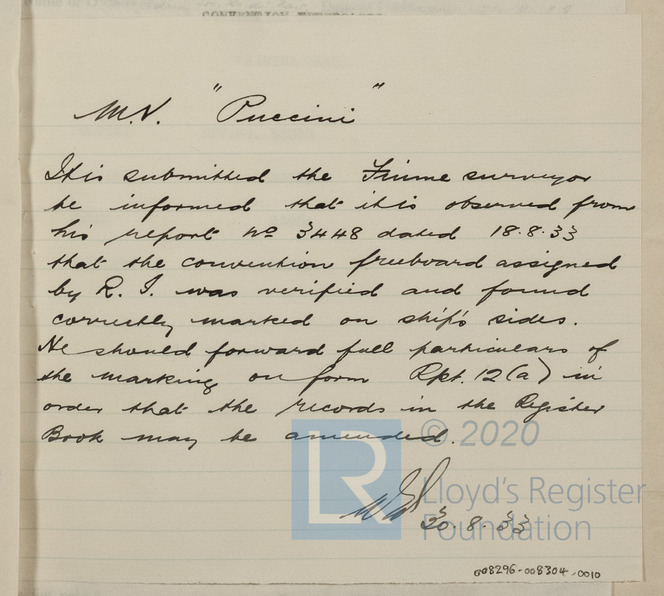 CONVENTION
M.V. "Puccini"
It is submitted the Fiume surveyor
be informed that it is observed from
his report No 3448 dated 18.8.33
that the convention freeboard assigned
by R.I. was verified and found
correctly marked on ship's sides.
He should forward full particulars of
the marking on form Rpt. 12(a) in
order that the records in the Register
Book may be amended.
© 2020
LR
Lloyd's Register
Foundation
30.8.33
008296-008304-0010